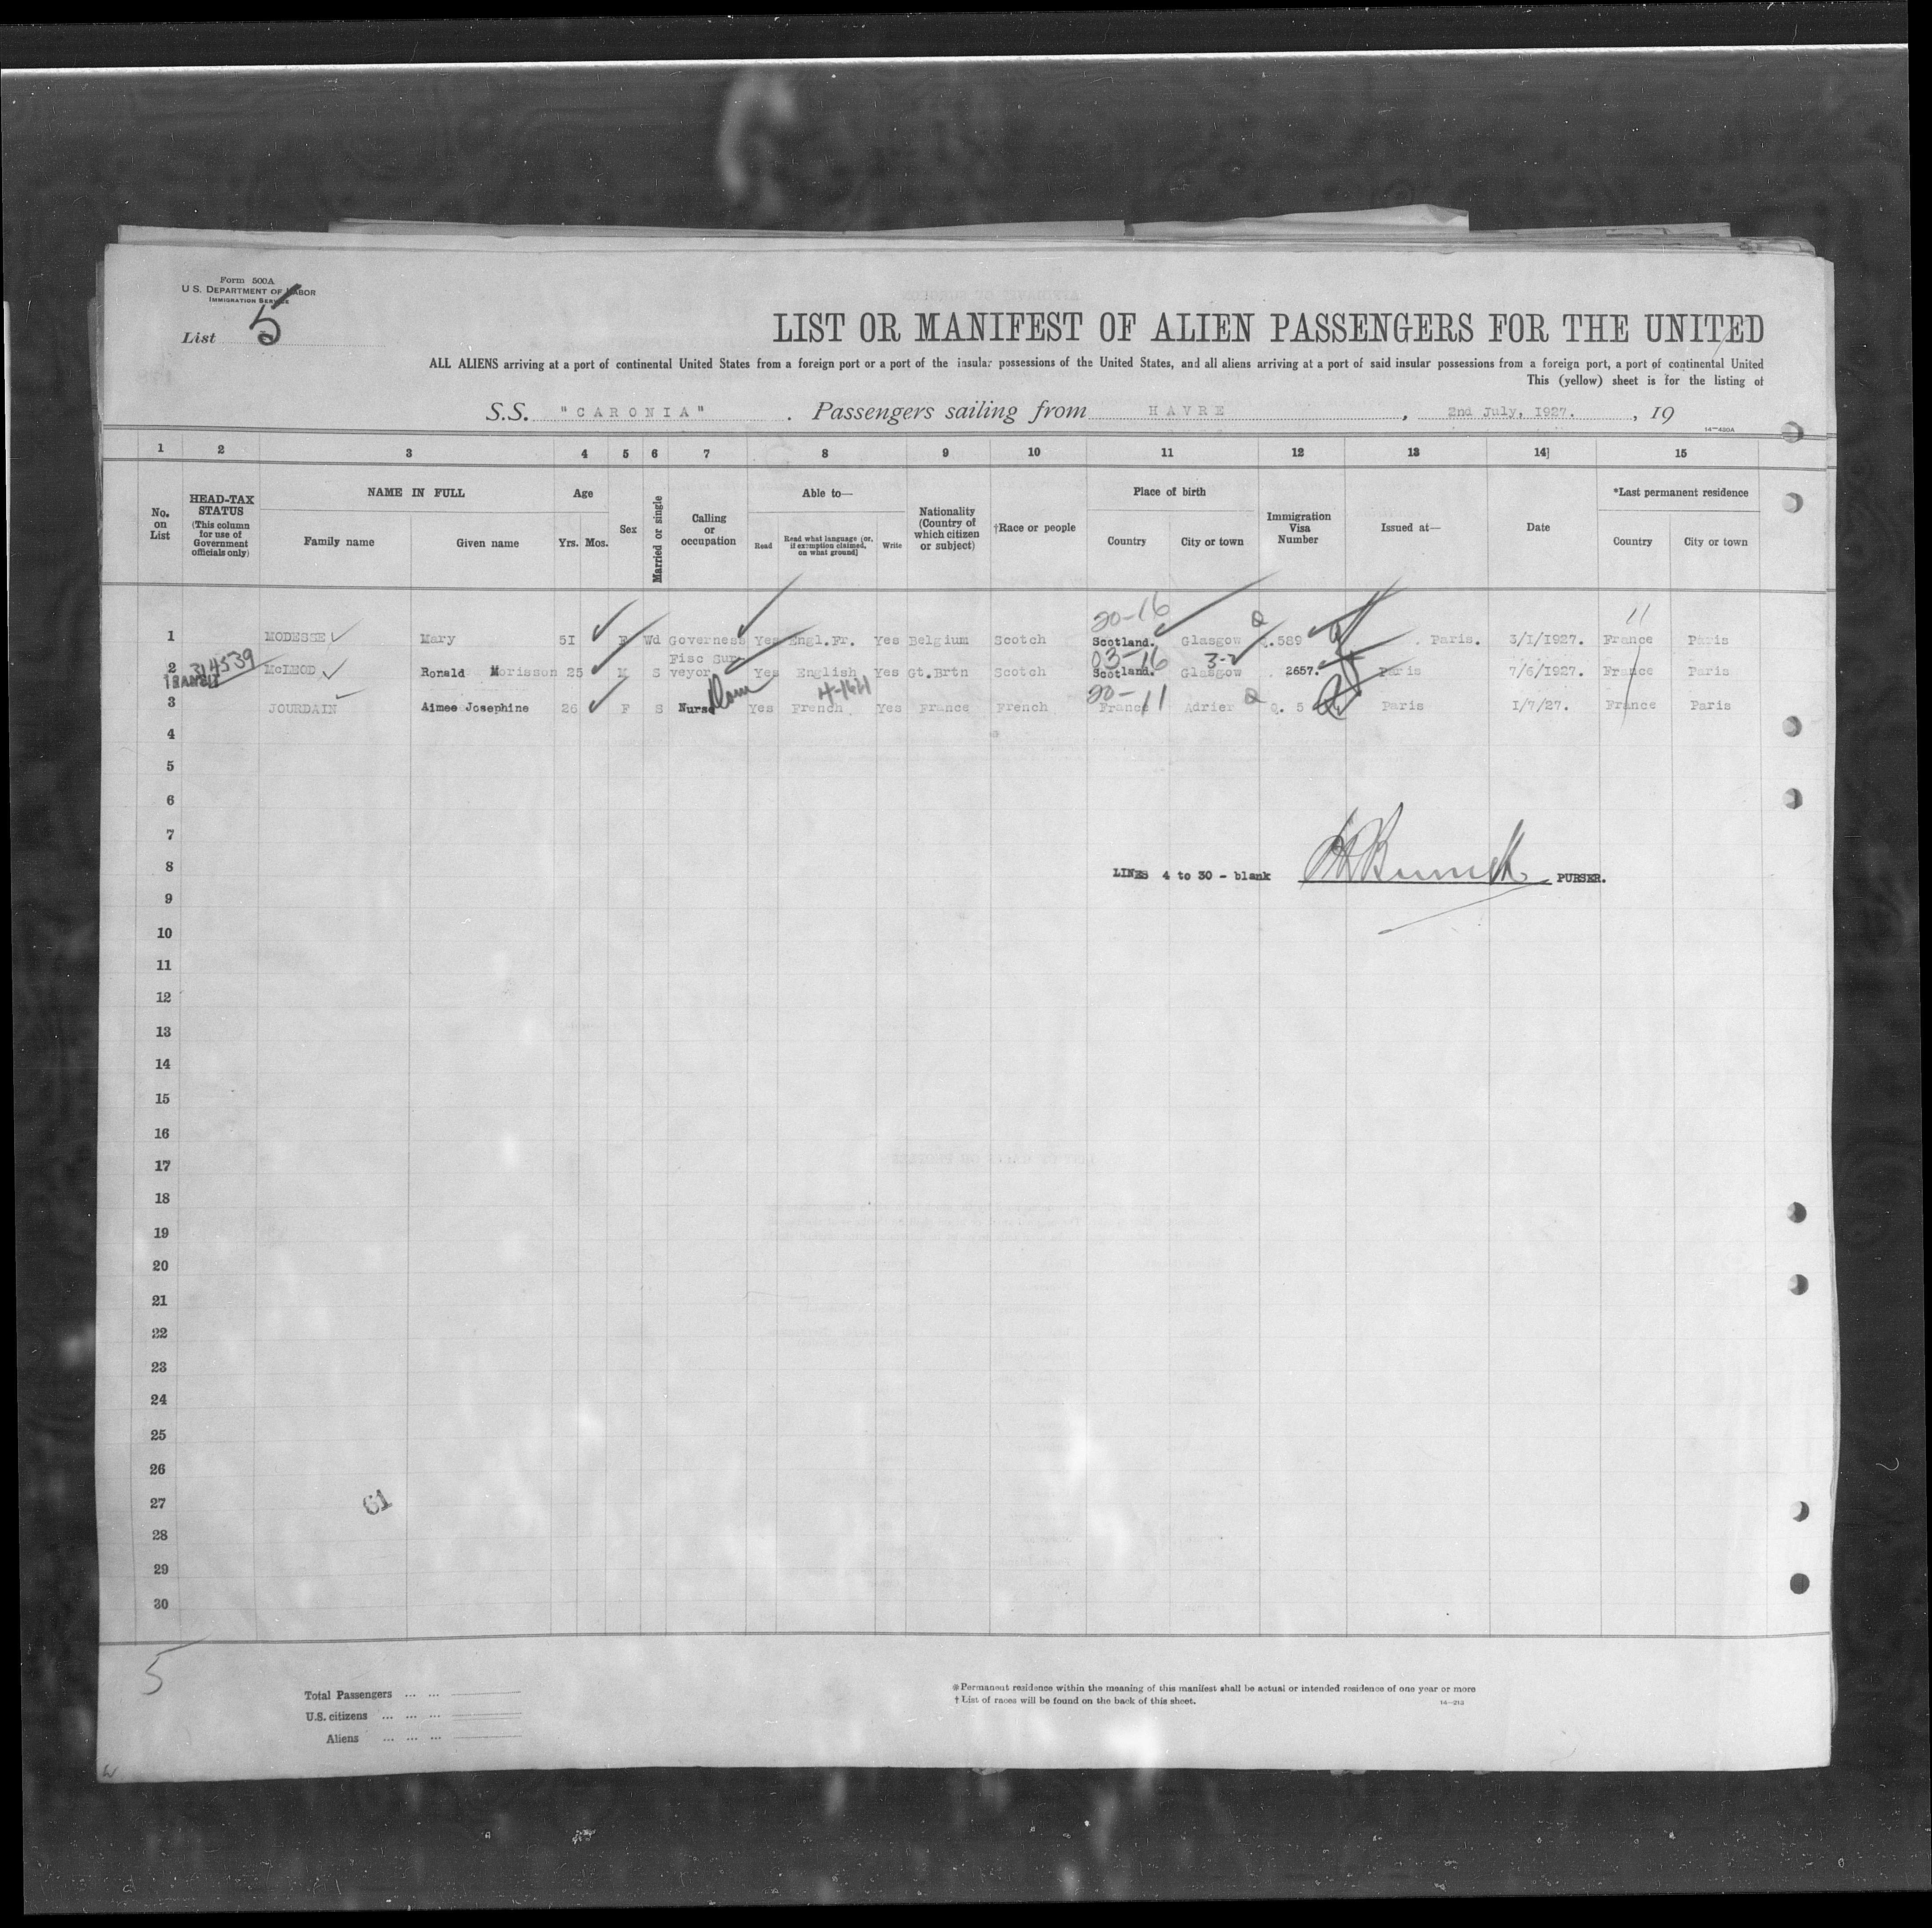 Form 500A
U. S. DEPARTMENT OF LABOR
IMMIGRATION SERVICE
List 5
LIST OR MANIFEST OF ALIEN PASSENGERS FOR THE UNITED
ALL ALIENS arriving at a port of continental United States from a foreign port or a port of the insular possessions of the United States, and all aliens arriving at a port of said insular possessions from a foreign port, a port of continental United
This (yellow) sheet is for the listing of
S.S. "CARONIA" . Passengers sailing from HAVRE , 2nd July, I927. , 19
14—430A
1 2 3 4 5 6 7 8 9 10 11 12 13 14] 15
No. on List
HEAD-TAX STATUS (This column for use of Government officials only)
NAME IN FULL
Family name Given name
Age
Yrs. Mos.
Sex
Married or single
Calling or occupation
Able to—
Read Read what language [or, if exemption claimed, on what ground] Write
Nationality (Country of which citizen or subject)
†Race or people
Place of birth
Country City or town
Immigration Visa Number
Issued at—
Date
*Last permanent residence
Country City or town
20-16 Q 11
1 MODESSE Mary 5I F Wd Governess Yes Engl.Fr. Yes Belgium Scotch Scotland. Glasgow Q.589 Paris. 3/I/I927. France Paris
314539 Fisc Sur 03-16 3-2
2 McLEOD Ronald Morisson 25 M S veyor Yes English Yes Gt.Brtn Scotch Scotland. Glasgow 2657. Paris 7/6/I927. France Paris
TRANSIT
20-11 Q
3 JOURDAIN Aimee Josephine 26 F S Nurse Yes French Yes France French France Adrier Q. 5 Paris I/7/27. France Paris
4
5
6
7
8
LINES 4 to 30 - blank PURSER.
9
10
11
12
13
14
15
16
17
18
19
20
21
22
23
24
25
26
27
61
28
29
30
5
Total Passengers ... ...
U.S. citizens ... ... ...
Aliens ... ... ...
*Permanent residence within the meaning of this manifest shall be actual or intended residence of one year or more
† List of races will be found on the back of this sheet.
14—213